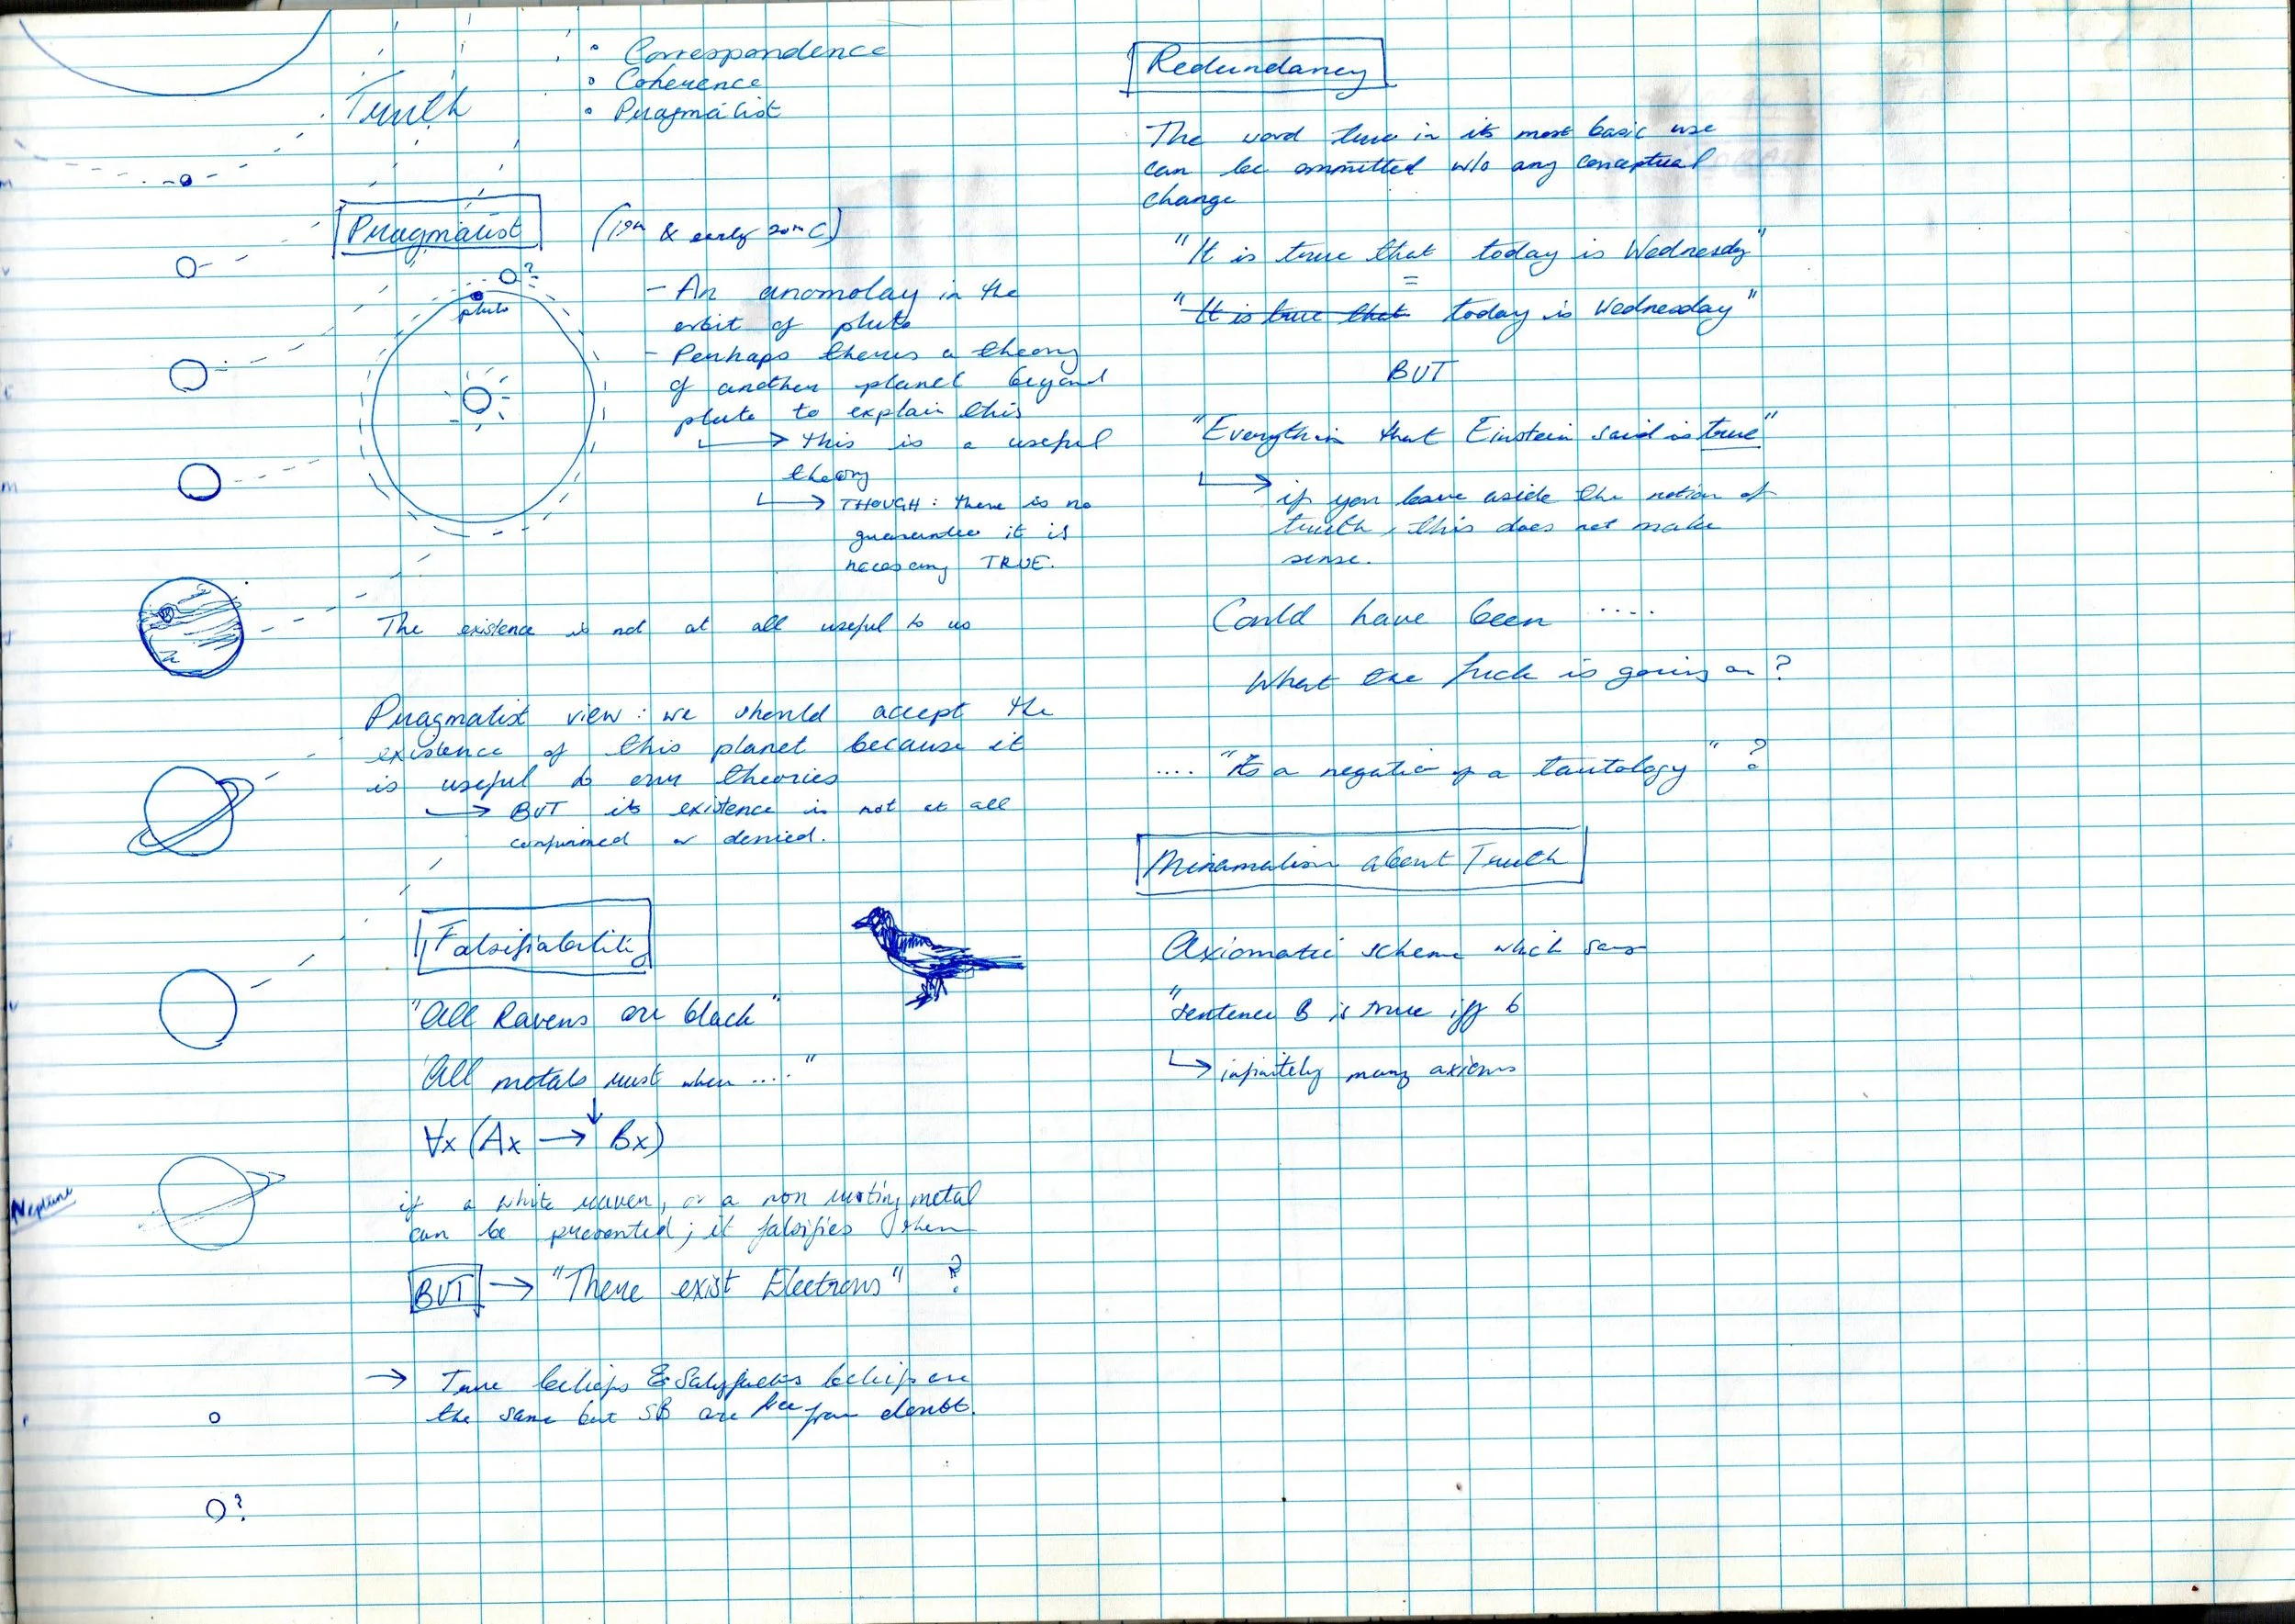 Truth
• Correspondence
• Coherence
• Pragmatist
Pragmatist
(19th & early 20th C)
?
pluto
- An anomolay in the
orbit of pluto
- Perhaps theres a theory
of another planet beyond
pluto to explain this
→ this is a useful
theory
→ THOUGH: there is no
guarantee it is
necessarily TRUE.
The existence is not at all useful to us
Pragmatist view: we should accept the
existence of this planet because it
is useful to our theories
→ BUT its existence is not at all
confirmed or denied.
Falsifiability
"All Ravens are black"
"All metals rust when ...."
∀x (Ax → Bx)
if a white raven, or a non rusting metal
can be presented; it falsifies them
BUT → "There exist Electrons" ?
→ True beliefs & Satisfactory beliefs are
the same but SB are free from doubt.
Neptune
?
Redundancy
The word true in its most basic use
can be ommitted w/o any conceptual
change
"It is true that today is Wednesday"
=
"It is true that today is Wednesday"
BUT
"Everything that Einstein said is true"
→ if you leave aside the notion of
truth, this does not make
sense.
Could have been ....
What the fuck is going on?
.... "Its a negation of a tautology" ?
Minamalism about Truth
Axiomatic scheme which says
"sentence B is true iff b
→ infinitely many axioms